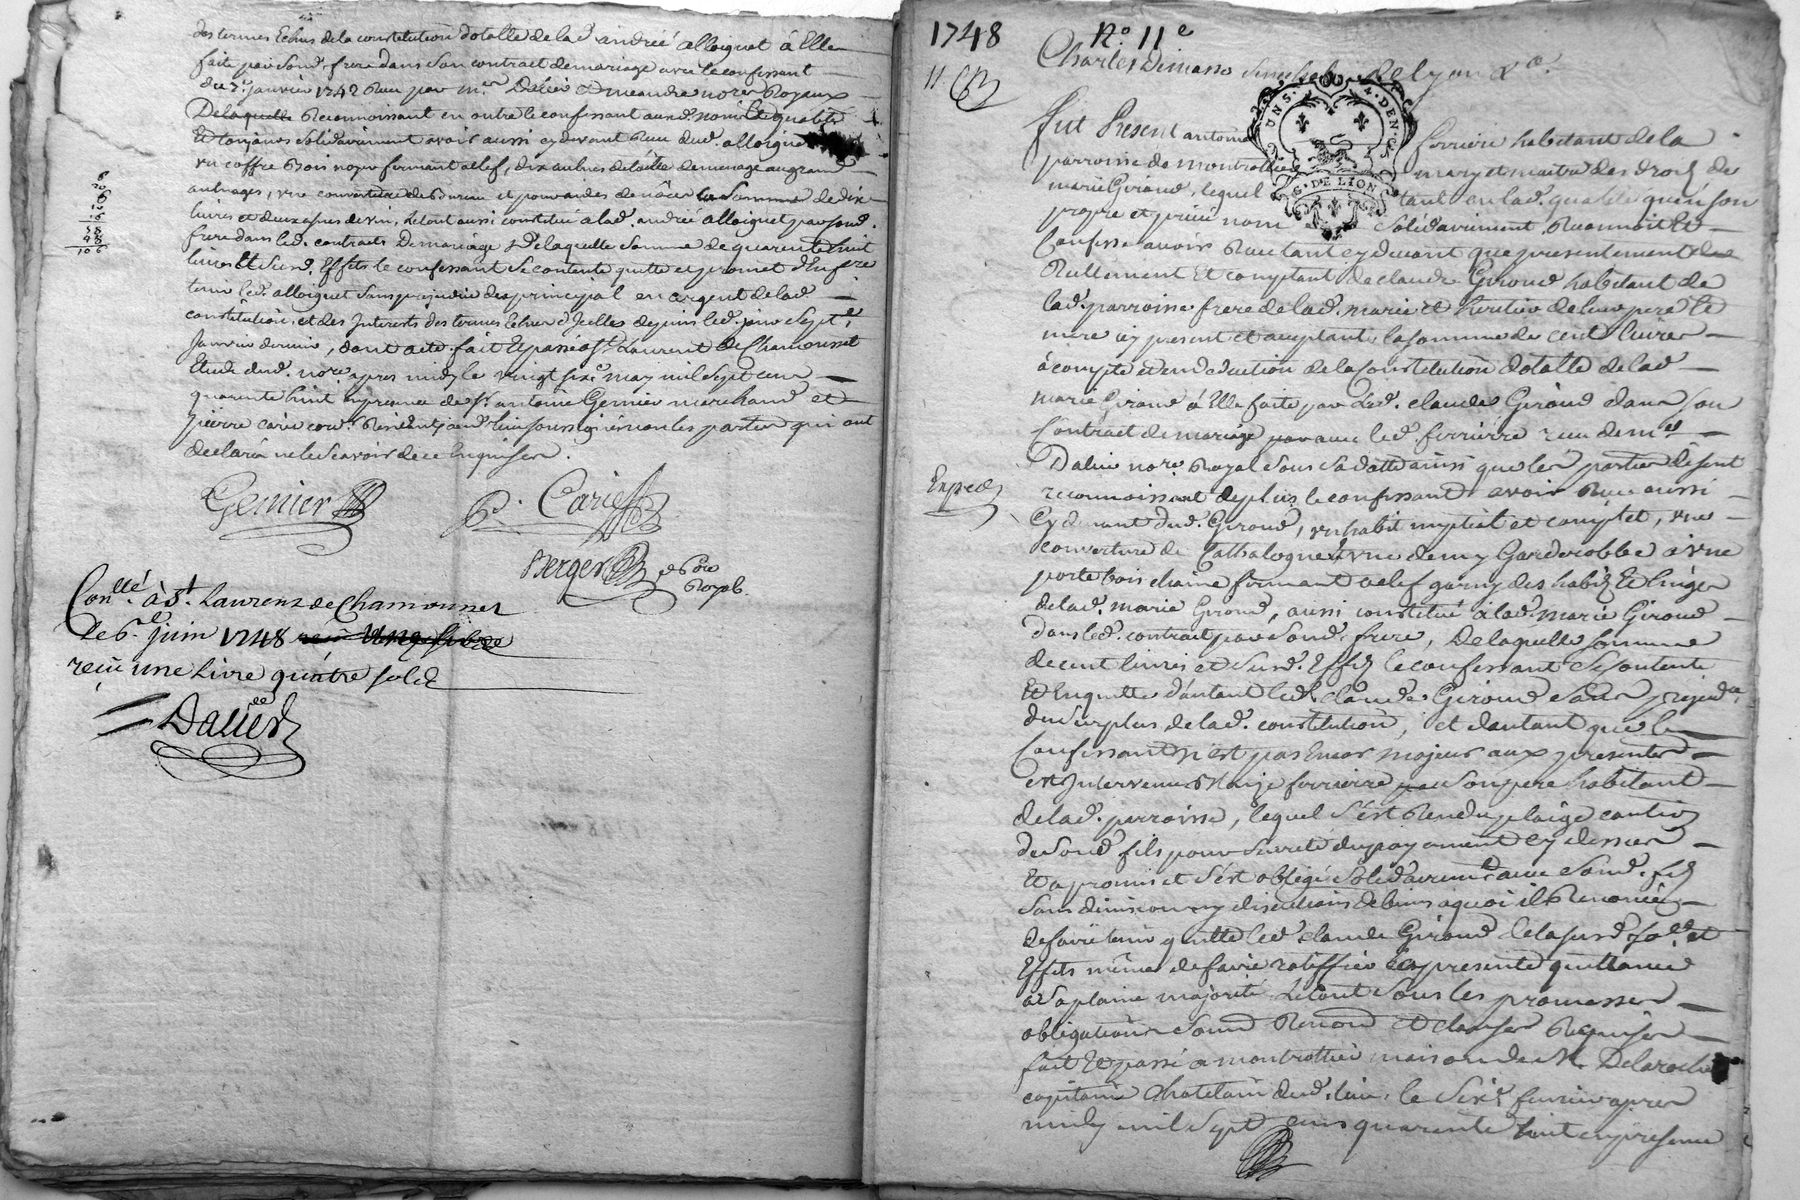 des termes Echus de la constitution dotalle de lad. andrée alloignet à Elle
faite par sond. frere dans son contract de mariage avec le confessant
du 7e. janvier 1742 Reçu par me. Dalier et meandre nores. Royaux
De laquelle Reconnoissant en outre le confessant auxd. noms et qualités
Et toujours Solidairement avoir aussi cy devant Reçu dud. alloignet
un coffre Bois noyer fermant a clef, dix aulnes de toille de menage au grand
aulnages, une couverture de Bureau et pour aides de nôces la Somme de dix
livres et deux asnées de vin, le tout aussi constitué à lad. andrée alloignet par sond.
frere dans led. contract De mariage, De laquelle Somme de quarente huit
livres Et Susd. Effets le confessant Se contente quitte et promet d'En faire
tenir led. alloignet Sans prejudice des principal en argent de lad.
constitution, et des Interests des termes Echus d'Icelles depuis led. jour Sept
Janvier dernier, dont acte fait Et passé a St. Laurent de Chamousset
Etude dud. nore. apres midy le vingt six may mil Sept cent
quarente huit en presence de sr. antoine Gernier marchand et
pierre carie cord. Residents aud. lieu soussignés non les parties qui ont
declaré ne le Scavoir de ce Enquises.
8
20
10
58
48
106
Gernier
P. Carie
Berger
nore
Royal
Conllé. à St. Laurens de Chamousset
Le 6e. juin 1748
reçu une Livre quatre sols
Dalier
1748 No. 11e
Charles Dimasso Senechal de lyon &c.
11
G. DE LION
Fut Present antoine ferriere habitant de la
parroisse de montrottier mary et maitre des droits de
marie Giroud, lequel tant en lad. qualité qu'en son
propre et privé nom Solidairement Reconnoit Et
Confesse avoir Reçu tant cy devant que presentement
Reellement Et comptant de claude Giroud habitant de
lad. parroisse frere de lad. marie et heritier de leur pere Et
mere icy present et acceptant, la somme de cent livres
à compte et en deduction de la Constitution dotalle de lad.
marie Giroud à Elle faite par led. claude Giroud dans son
Contract de mariage passé avec led. ferriere reçu de me.
Dalier nore. Royal Sous Sa datte ainsi que les parties disent
Exped.
reconnoissant de plus le confessant avoir Reçu aussi
Cy devant dud. Giroud, un habit nuptial et complet, une
couverture de Cathalogne, et une demy Garderobbe à une
porte bois chaine fermant a clef garny des habits Et linges
de lad. marie Giroud, aussi constitué à lad. marie Giroud
dans led. contract par Sond. frere, De laquelle Somme
de cent livres et Susd. Effets le confessant Se contente
Et En quitte d'autant led. claude Giroud Sans prejudice
du Surplus de lad. constitution, et d'autant que le
Confessant n'est pas Encor majeur aux presentes
est Intervenu Blaize ferriere son pere habitant
de lad. parroisse, lequel S'est Rendu plaige caution
de Sond. fils pour Sureté du payement cy dessus
Et a promis et S'est obligé Solidairement avec Sond. fils
Sans division ny discution de biens a quoi il Renonce
De faire tenir quitte led. claude Giroud de la susd. Soe. et
Effets même de faire ratiffier la presente quittance
a Sa plaine majorité Le tout Sous les promesses
obligations Soumd. Renond. Et clauses Requises
fait Et passé a montrottier maison de M. Delaroche
capitaine chatelain dud. lieu, le Six fevrier apres
midy mil Sept cens quarente huit en presence